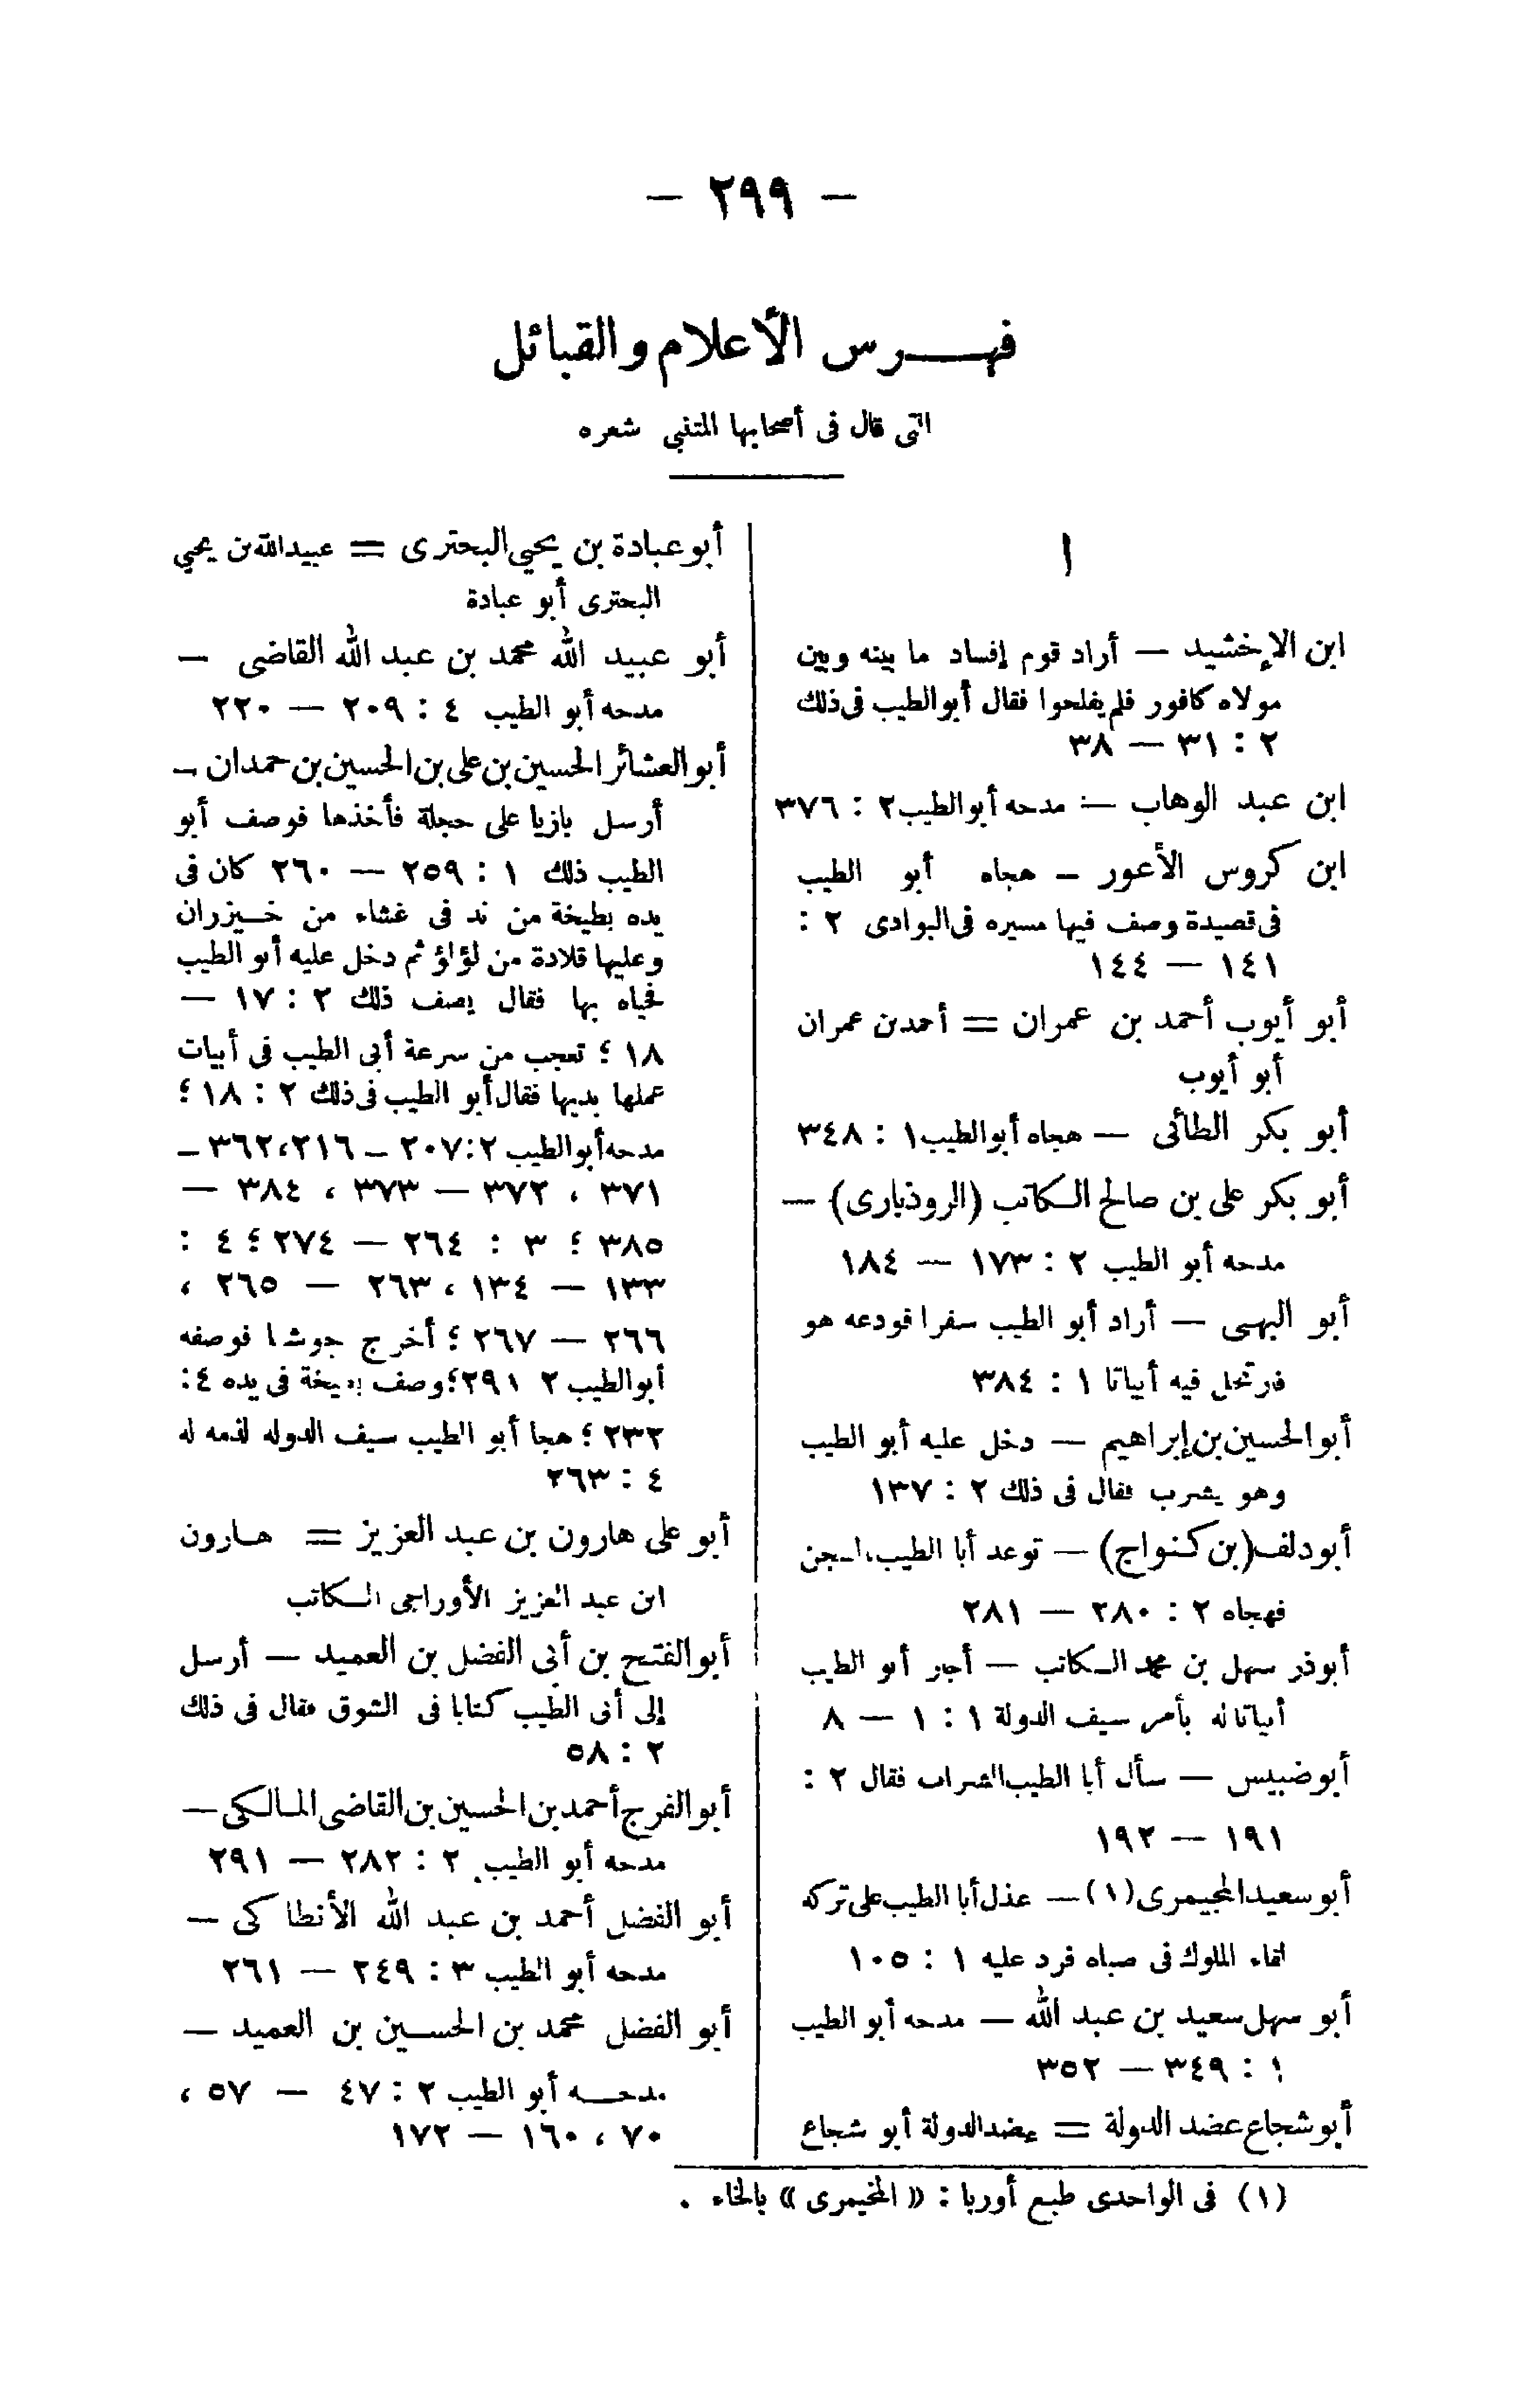 — ٢٩٩ —
فهـرس الأعلام والقبائل
التى قال فى أصحابها المتنبى شعره
ا
ابن الإخشيد — أراد قوم إفساد ما بينه وبين
مولاه كافور فلم يفلحوا فقال أبو الطيب فى ذلك
٢ : ٣١ — ٣٨
ابن عبد الوهاب — مدحه أبو الطيب ٢ : ٣٧٦
ابن كروس الأعور — هجاه أبو الطيب
فى قصيدة وصف فيها مسيره فى البوادى ٢ :
١٤١ — ١٤٤
أبو أيوب أحمد بن عمران = أحمد بن عمران
أبو أيوب
أبو بكر الطائى — هجاه أبو الطيب ١ : ٣٤٨
أبو بكر على بن صالح الكاتب (الروذبارى) —
مدحه أبو الطيب ٢ : ١٧٣ — ١٨٤
أبو البهى — أراد أبو الطيب سفرا فودعه هو
فارتجل فيه أبياتا ١ : ٣٨٤
أبو الحسين بن إبراهيم — دخل عليه أبو الطيب
وهو يشرب فقال فى ذلك ٢ : ١٣٧
أبو دلف (بن كنواج) — توعد أبا الطيب
فهجاه ٢ : ٢٨٠ — ٢٨١
أبو ذر سهل بن محمد الكاتب — أجاز أبو الطيب
أبياتا له بأمر سيف الدولة ١ : ١ — ٨
أبو ضبيس — سأل أبا الطيب الشراب فقال ٢ :
١٩١ — ١٩٢
أبو سعيد المجيمرى (١) — عذل أبا الطيب على تركه
لقاء الملوك فى صباه فرد عليه ١ : ١٠٥
أبو سهل سعيد بن عبد الله — مدحه أبو الطيب
١ : ٣٤٩ — ٣٥٢
أبو شجاع عضد الدولة = عضد الدولة أبو شجاع
أبو عبادة بن يحيى البحترى = عبيد الله بن يحيى
البحترى أبو عبادة
أبو عبيد الله محمد بن عبد الله القاضى —
مدحه أبو الطيب ٤ : ٢٠٩ — ٢٢٠
أبو العشائر الحسين بن على بن الحسين بن حمدان —
أرسل بازيا على حجلة فأخذها فوصف أبو
الطيب ذلك ١ : ٢٥٩ — ٢٦٠ كان فى
يده بطيخة من ند فى غشاء من خيزران
وعليها قلادة من لؤلؤ ثم دخل عليه أبو الطيب
فحياه بها فقال يصف ذلك ٢ : ١٧ —
١٨ ؛ تعجب من سرعة أبى الطيب فى أبيات
عملها بديها فقال أبو الطيب فى ذلك ٢ : ١٨ ؛
مدحه أبو الطيب ٢ : ٢٠٧ — ٢١٦ ، ٣٦٢ —
٣٧١ ، ٣٧٢ — ٣٧٣ ، ٣٨٤ —
٣٨٥ ؛ ٣ : ٢٦٤ — ٢٧٤ ؛ ٤ :
١٣٣ — ١٣٤ ، ٢٦٣ — ٢٦٥ ،
٢٦٦ — ٢٦٧ ؛ أخرج جوشنا فوصفه
أبو الطيب ٢ ٢٩١ ؛ وصف بطيخة فى يده ٤ :
٢٣٢ ؛ هجا أبو الطيب سيف الدوله لذمه له
٤ : ٢٦٣
أبو على هارون بن عبد العزيز = هارون
ابن عبد العزيز الأوراجى الكاتب
أبو الفتح بن أبى الفضل بن العميد — أرسل
إلى أبى الطيب كتابا فى الشوق فقال فى ذلك
٢ : ٥٨
أبو الفرج أحمد بن الحسين بن القاضى المالكى —
مدحه أبو الطيب ٢ : ٢٨٢ — ٢٩١
أبو الفضل أحمد بن عبد الله الأنطاكى —
مدحه أبو الطيب ٣ : ٢٤٩ — ٢٦١
أبو الفضل محمد بن الحسين بن العميد —
مدحه أبو الطيب ٢ : ٤٧ — ٥٧ ،
٧٠ ، ١٦٠ — ١٧٢
(١) فى الواحدى طبع أوربا : « المخيمرى » بالخاء .